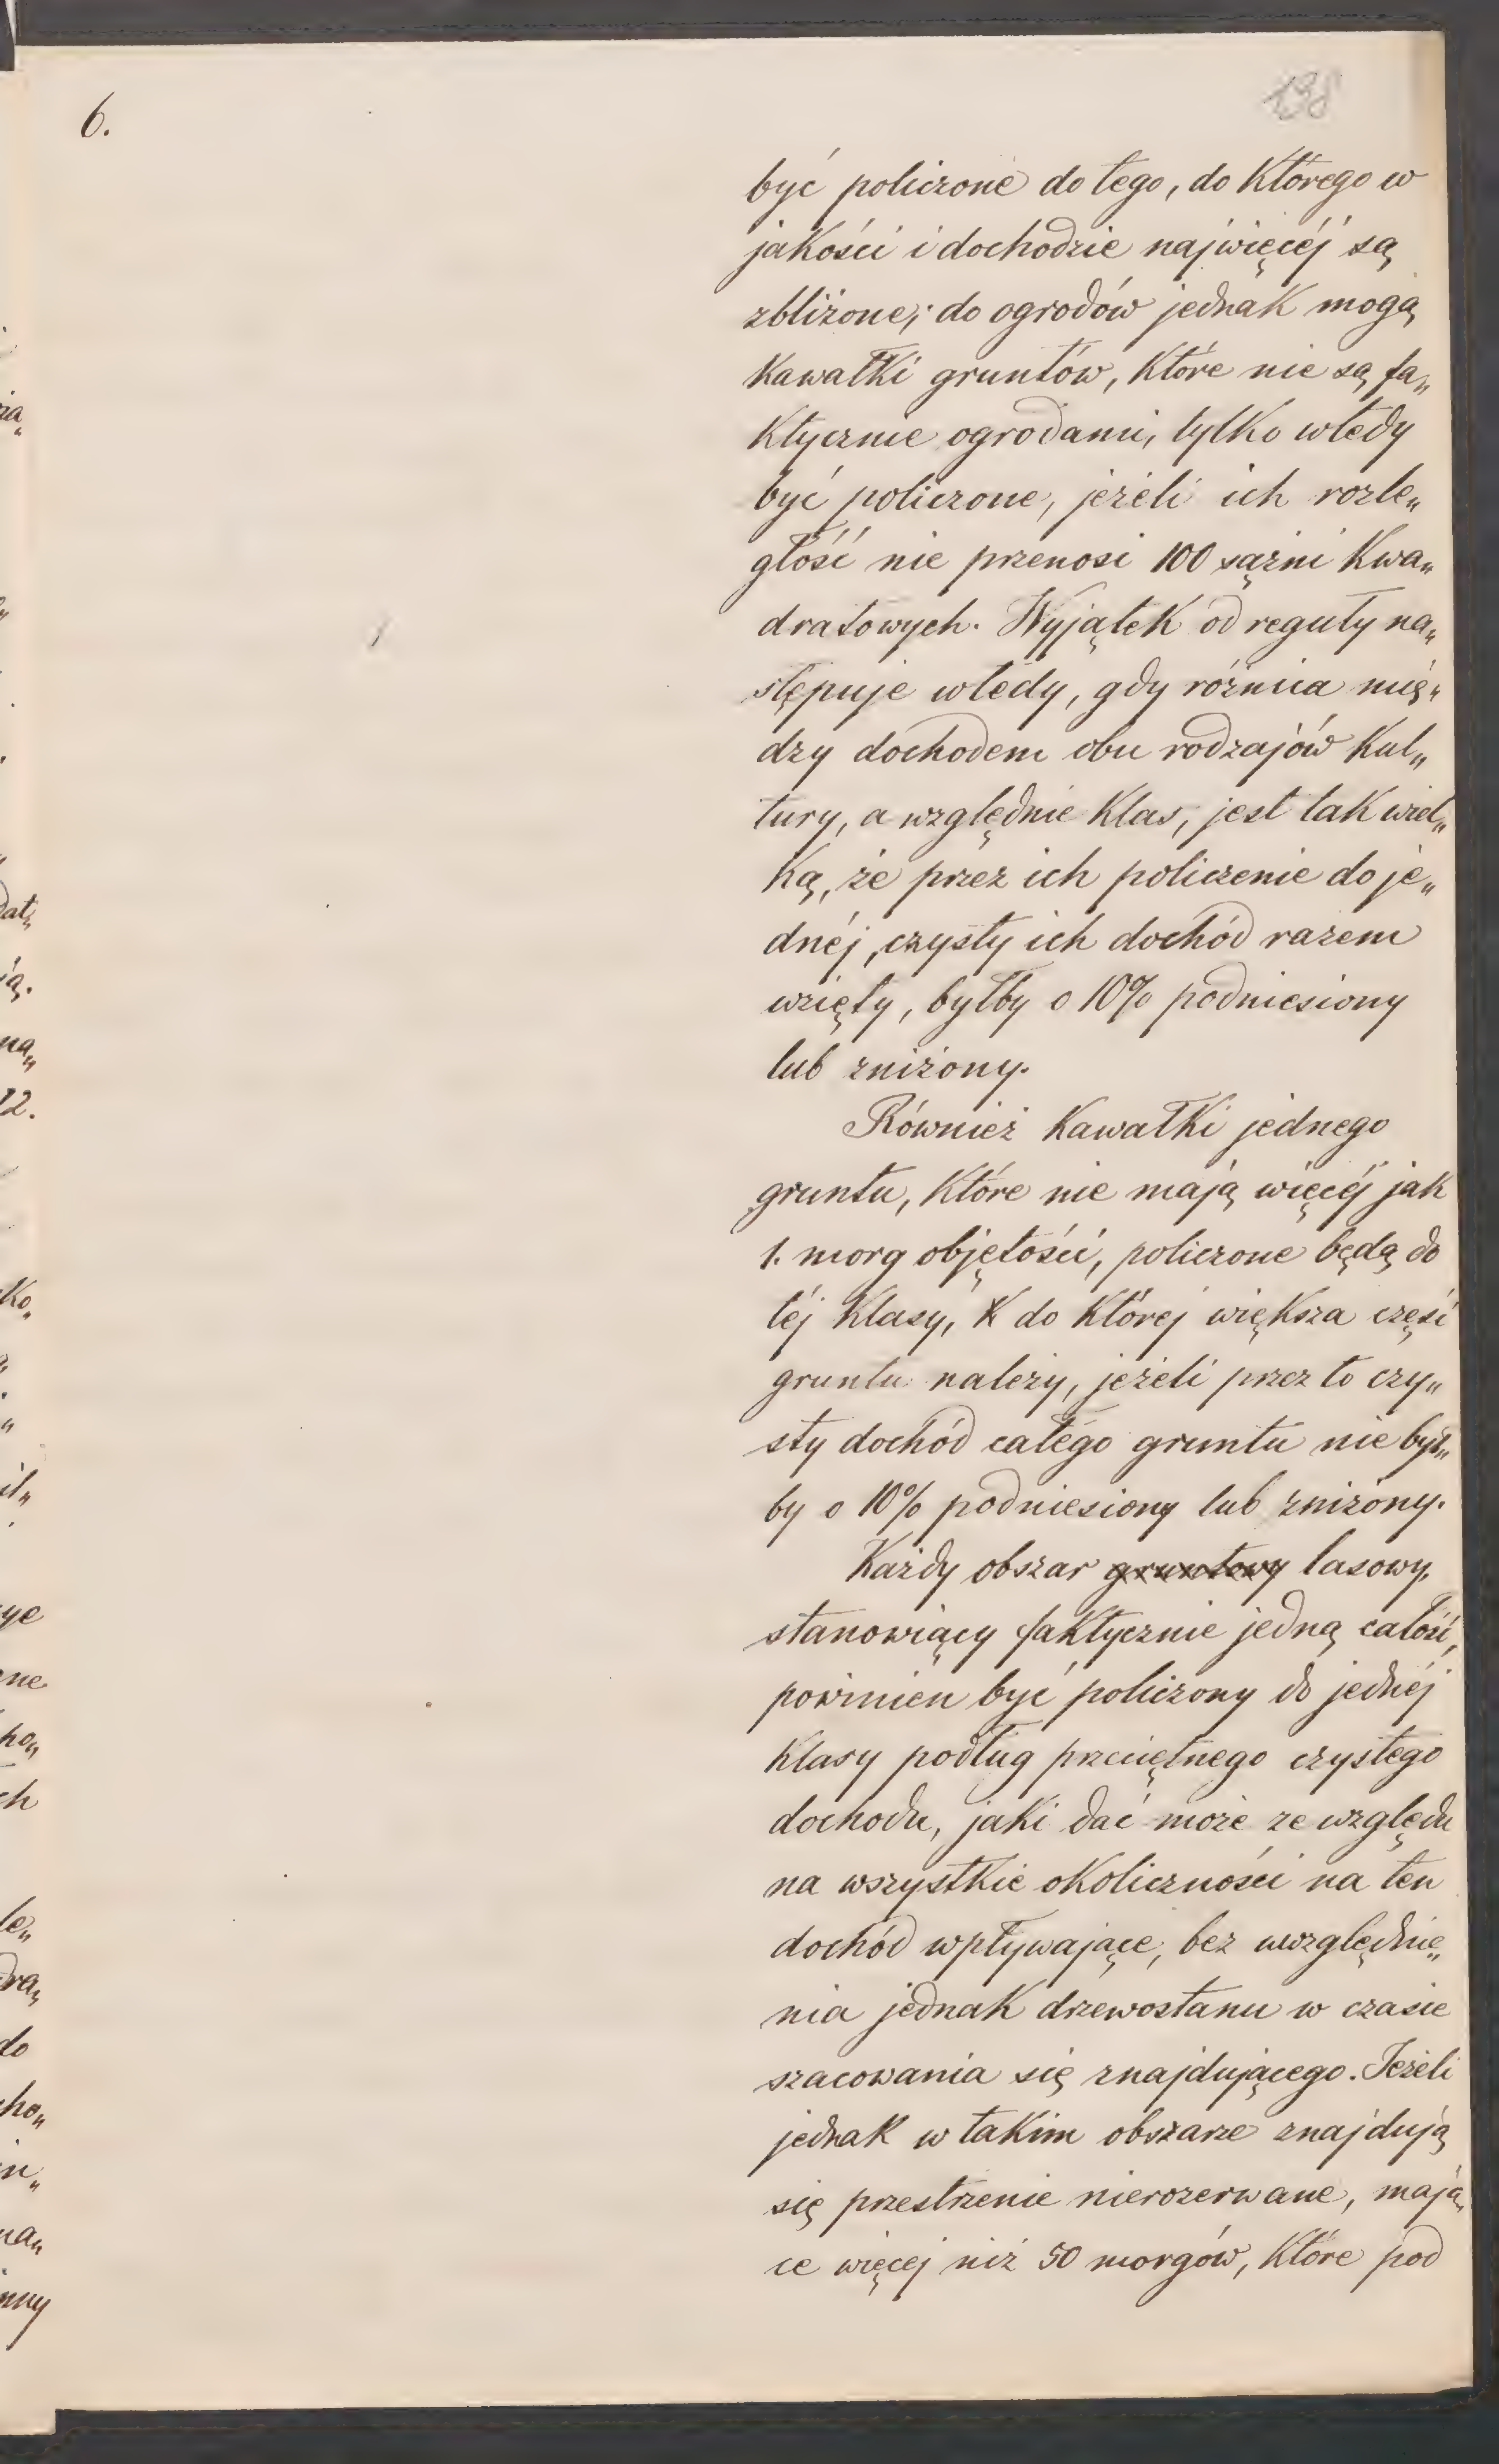 6.
138
być policzone do tego, do którego w
jakości i dochodzie najwięcéj są
zbliżone; do ogrodów jednak mogą
kawałki gruntów, które nie są fa„
ktycznie ogrodami, tylko wtedy
być policzone, jeżeli ich rozle„
głość nie przenosi 100 sążni kwa„
dratowych. Wyjątek od reguły na„
stępuje wtedy, gdy różnica mię„
dzy dochodem obu rodzajów kul„
tury, a względnie klas, jest tak wiel„
ką, że przez ich policzenie do je„
dnéj, czysty ich dochód razem
wzięty, byłby o 10% podniesiony
lub zniżony.
Również kawałki jednego
gruntu, które nie mają więcéj jak
1. morg objętości, policzone będą do
téj klasy, k do której większa część
gruntu należy, jeżeli przez to czy„
sty dochód całego gruntu nie był„
by o 10% podniesiony lub zniżony.
Każdy obszar gruntowy lasowy,
stanowiący faktycznie jedną całość,
powinien być policzony do jednéj
klasy podług przeciętnego czystego
dochodu, jaki dać może ze względu
na wszystkie okoliczności na ten
dochód wpływające, bez uwzględnie„
nia jednak drzewostanu w czasie
szacowania się znajdującego. Jeżeli
jednak w takim obszarze znajdują
się przestrzenie nierozerwane, mają„
ce więcej niż 50 morgów, które pod